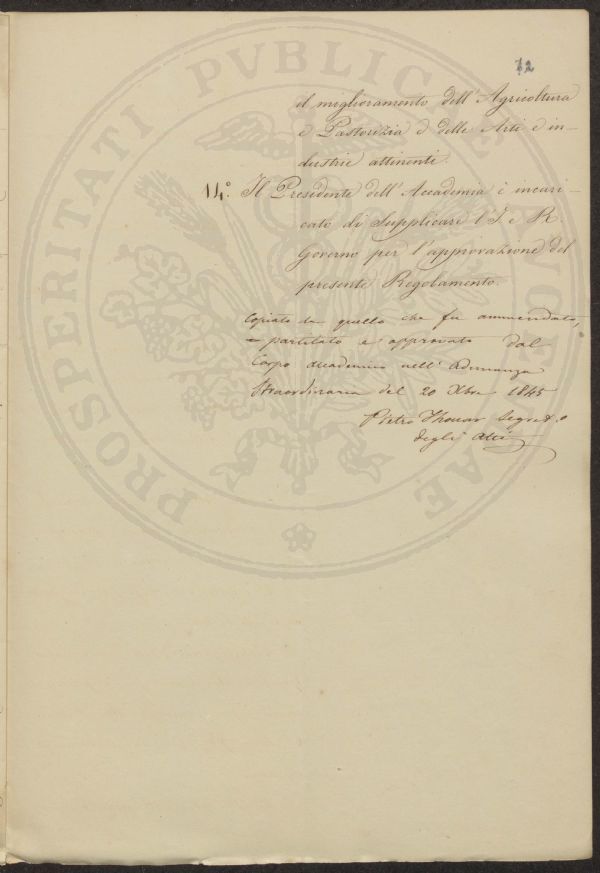 12
il miglioramento dell'Agricoltura
e Pastorizia e delle Arti e in-
dustrie attinenti.
14.° Il Presidente dell'Accademia è incari-
cato di Supplicare l'I. e R.
Governo per l'approvazione del
presente Regolamento.
Copiato da quello che fu ammendato,
e partitato e approvato dal
Corpo Accademico nell'Adunanza
Straordinaria del 20 Xbre 1845
Pietro Thouar Segret.o
degli Atti
PROSPERITATI PVBLICAE AVGENDAE